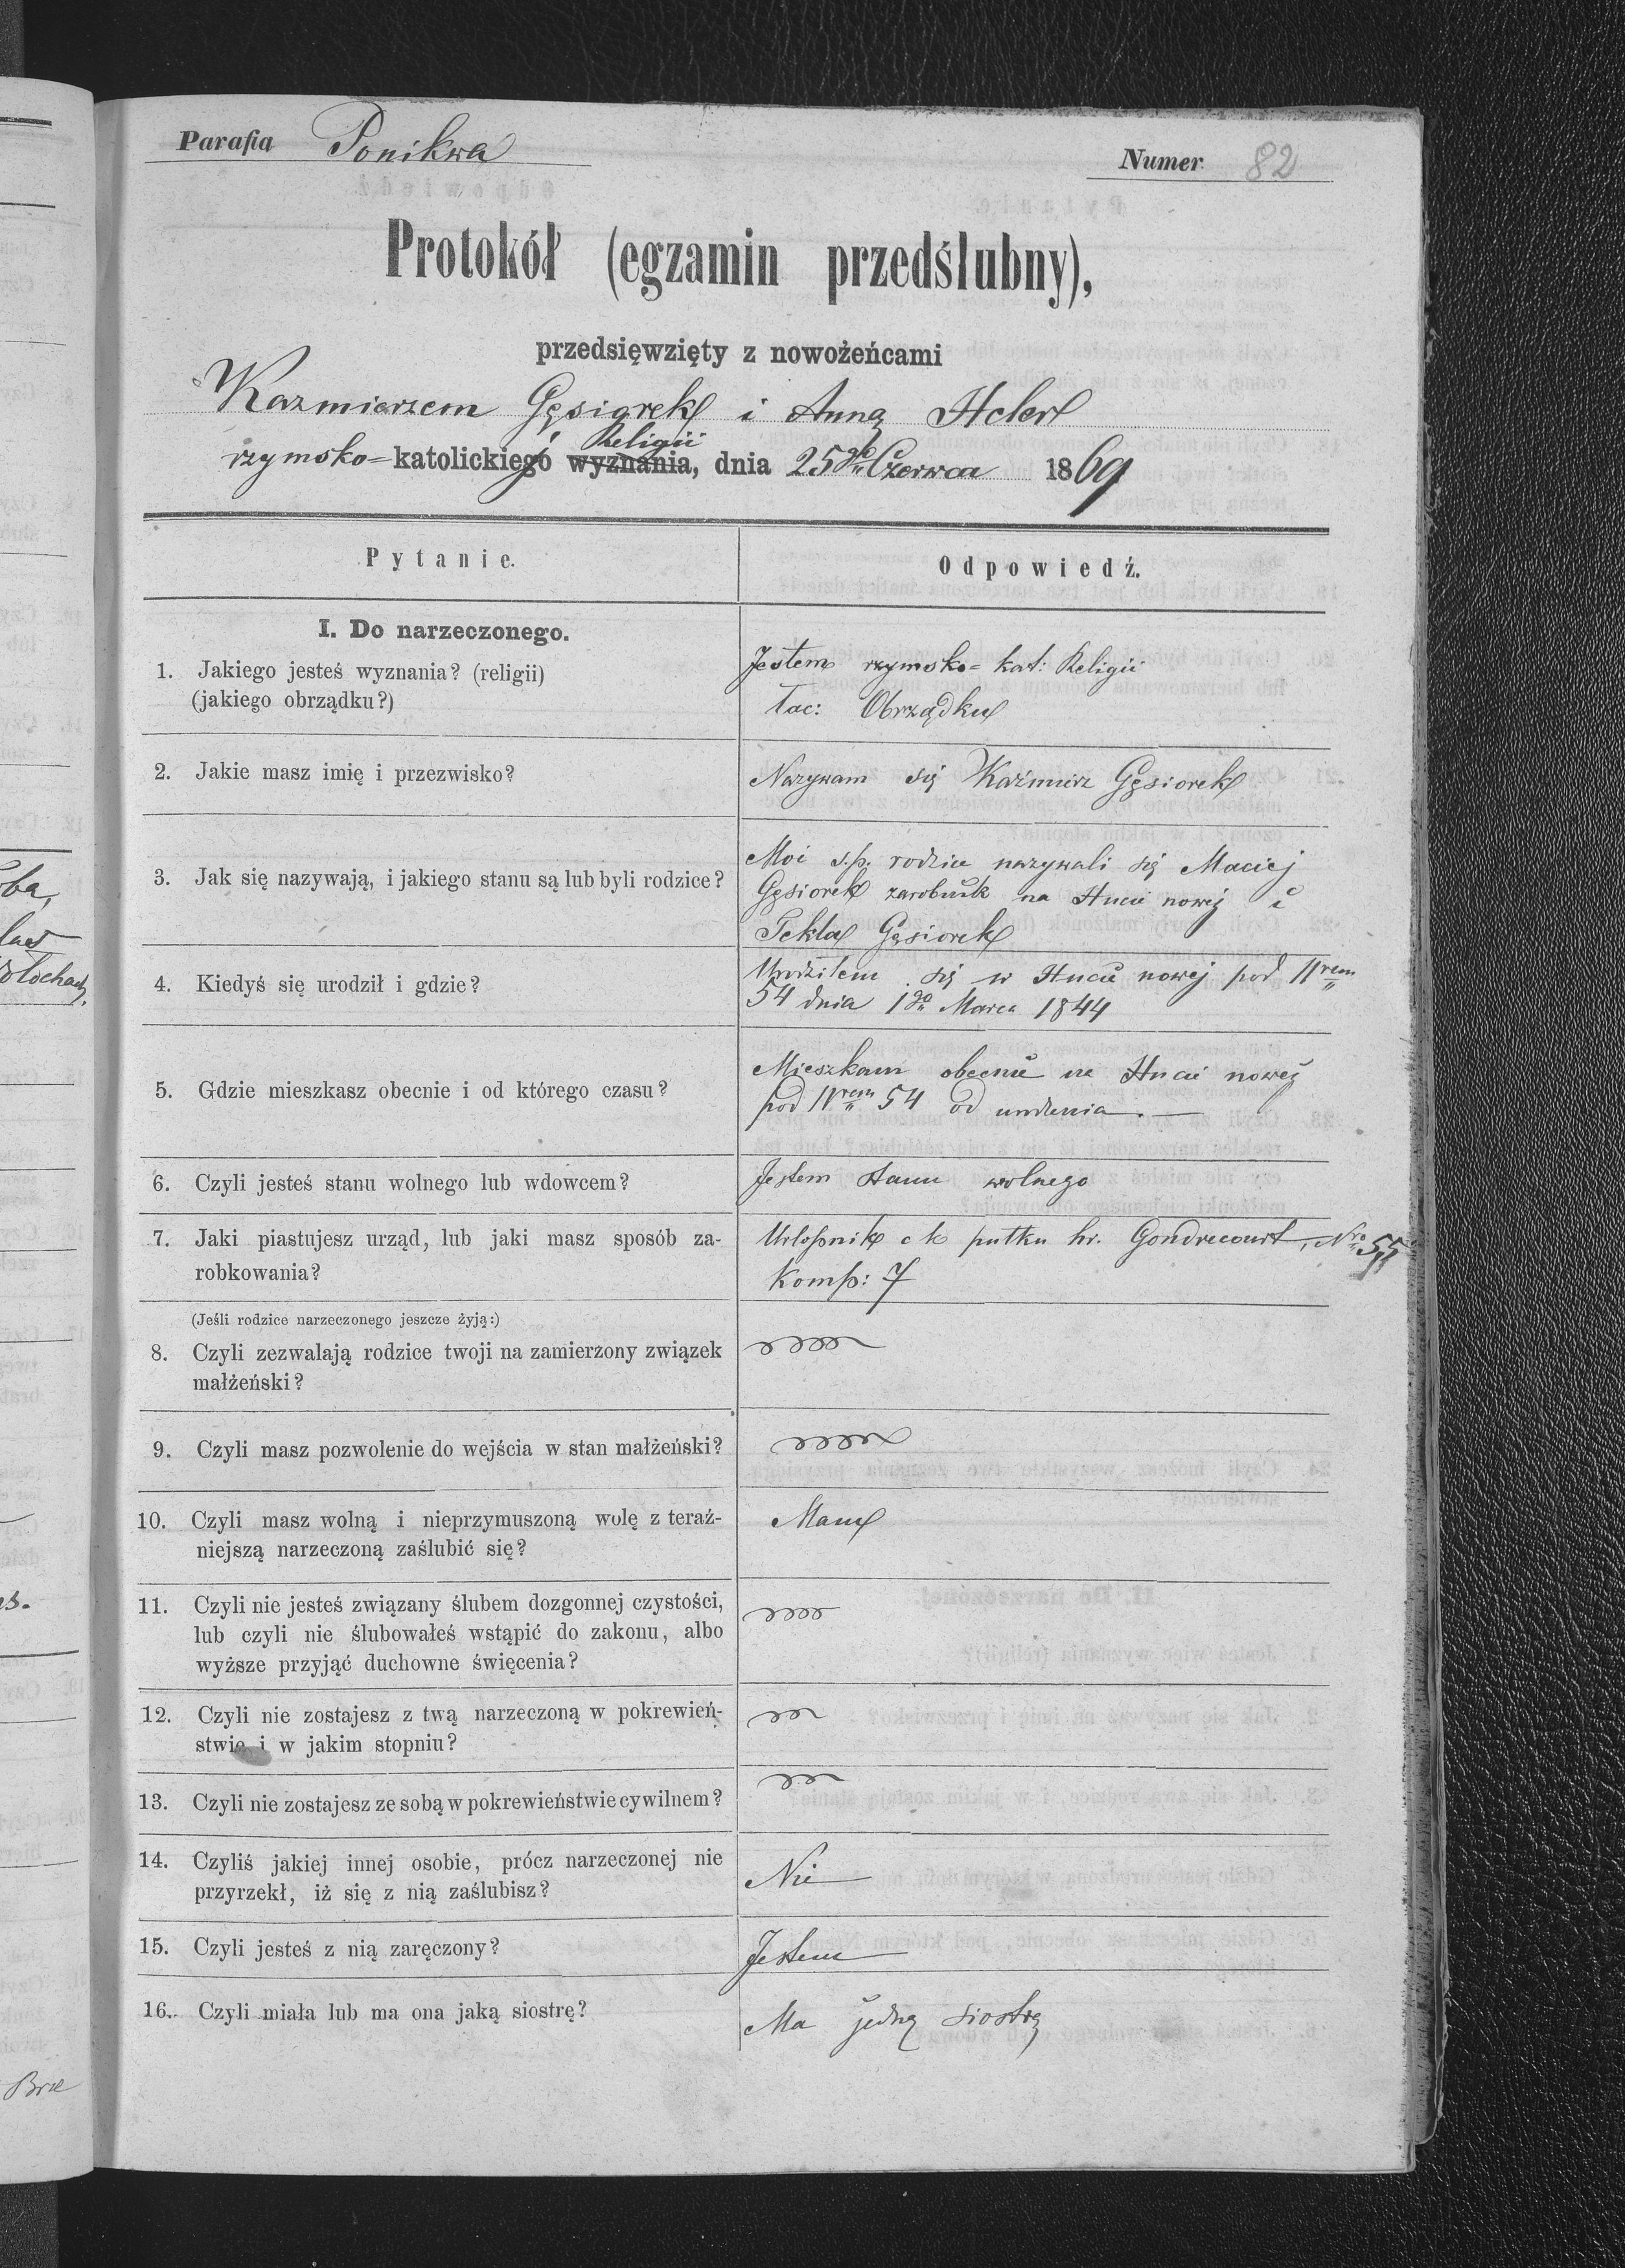 Parafia Ponikwa
Numer 82
Protokół (egzamin przedślubny),
przedsięwzięty z nowożeńcami
Kazmierzem Gęsiorek i Anną Heler
rzymsko=katolickiego wyznania, Religii dnia 25go Czerwca 1869
Pytanie.
Odpowiedź.
I. Do narzeczonego.
1. Jakiego jesteś wyznania? (religii)
(jakiego obrządku?)
Jestem rzymsko=kat: Religii
łac: Obrządku
2. Jakie masz imię i przezwisko?
Nazywam się Kaźmierz Gęsiorek
3. Jak się nazywają, i jakiego stanu są lub byli rodzice?
Moi s.p. rodzice nazywali się Maciej
Gęsiorek zarobnik na Hucie nowej i
Tekla Gęsiorek
4. Kiedyś się urodził i gdzie?
Urodziłem się w Hucie nowej pod Nrem
54 dnia 1go Marca 1844
5. Gdzie mieszkasz obecnie i od którego czasu?
Mieszkam obecnie na Hucie nowej
pod Nrem 54 od urodzenia. —
6. Czyli jesteś stanu wolnego lub wdowcem?
Jestem stanu wolnego
7. Jaki piastujesz urząd, lub jaki masz sposób za-
robkowania?
Urlopnik ck pułku hr. Gondrecourt, Nro 55
Komp: 7
(Jeśli rodzice narzeczonego jeszcze żyją:)
8. Czyli zezwalają rodzice twoji na zamierzony związek
małżeński?
9. Czyli masz pozwolenie do wejścia w stan małżeński?
10. Czyli masz wolną i nieprzymuszoną wolę z teraź-
niejszą narzeczoną zaślubić się?
Mam
11. Czyli nie jesteś związany ślubem dozgonnej czystości,
lub czyli nie ślubowałeś wstąpić do zakonu, albo
wyższe przyjąć duchowne święcenia?
12. Czyli nie zostajesz z twą narzeczoną w pokrewień-
stwie i w jakim stopniu?
13. Czyli nie zostajesz ze sobą w pokrewieństwie cywilnem?
14. Czyliś jakiej innej osobie, prócz narzeczonej nie
przyrzekł, iż się z nią zaślubisz?
Nie
15. Czyli jesteś z nią zaręczony?
Jestem
16. Czyli miała lub ma ona jaką siostrę?
Ma jedną siostrę